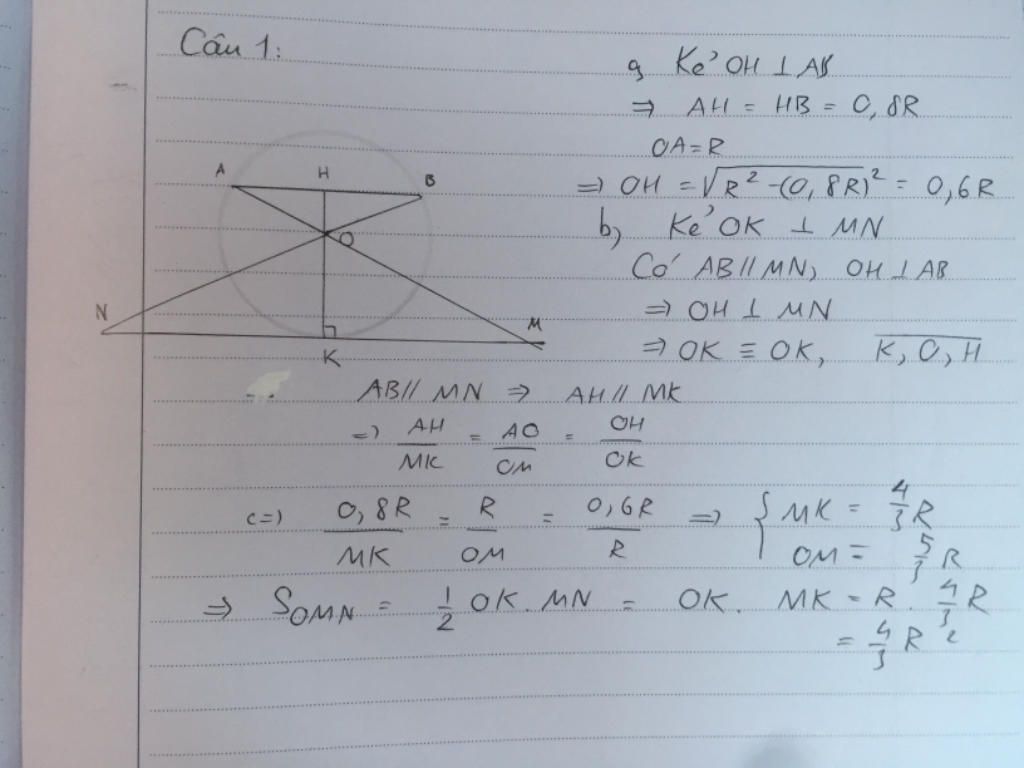 Câu 1:
a, Kẻ OH ⊥ AB
⇒ AH = HB = 0,8R
OA = R
⇒ OH = √R² - (0,8R)² = 0,6R
b, Kẻ OK ⊥ MN
Có AB // MN, OH ⊥ AB
⇒ OH ⊥ MN
⇒ OK ≡ OK, K, O, H
A H B
O
N M
K
AB // MN ⇒ AH // MK
=) AH/MK = AO/OM = OH/OK
c=) 0,8R/MK = R/OM = 0,6R/R ⇒ { MK = 4/3 R
OM = 5/3 R
⇒ SOMN = 1/2 OK . MN = OK . MK = R . 4/3 R
= 4/3 R²